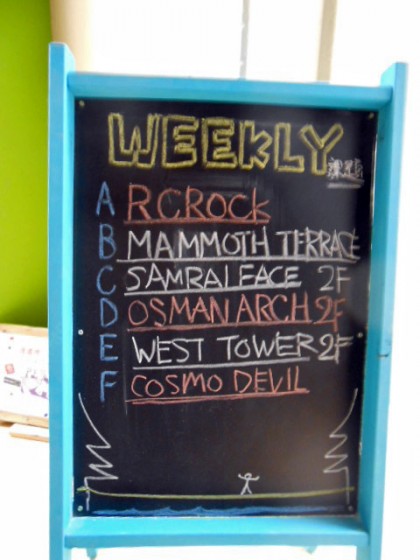 WEEKLY
課題
A RCROCK
B MAMMOTH TERRACE
C SAMRAI FACE 2F
D OSMAN ARCH 2F
E WEST TOWER 2F
F COSMO DEVIL